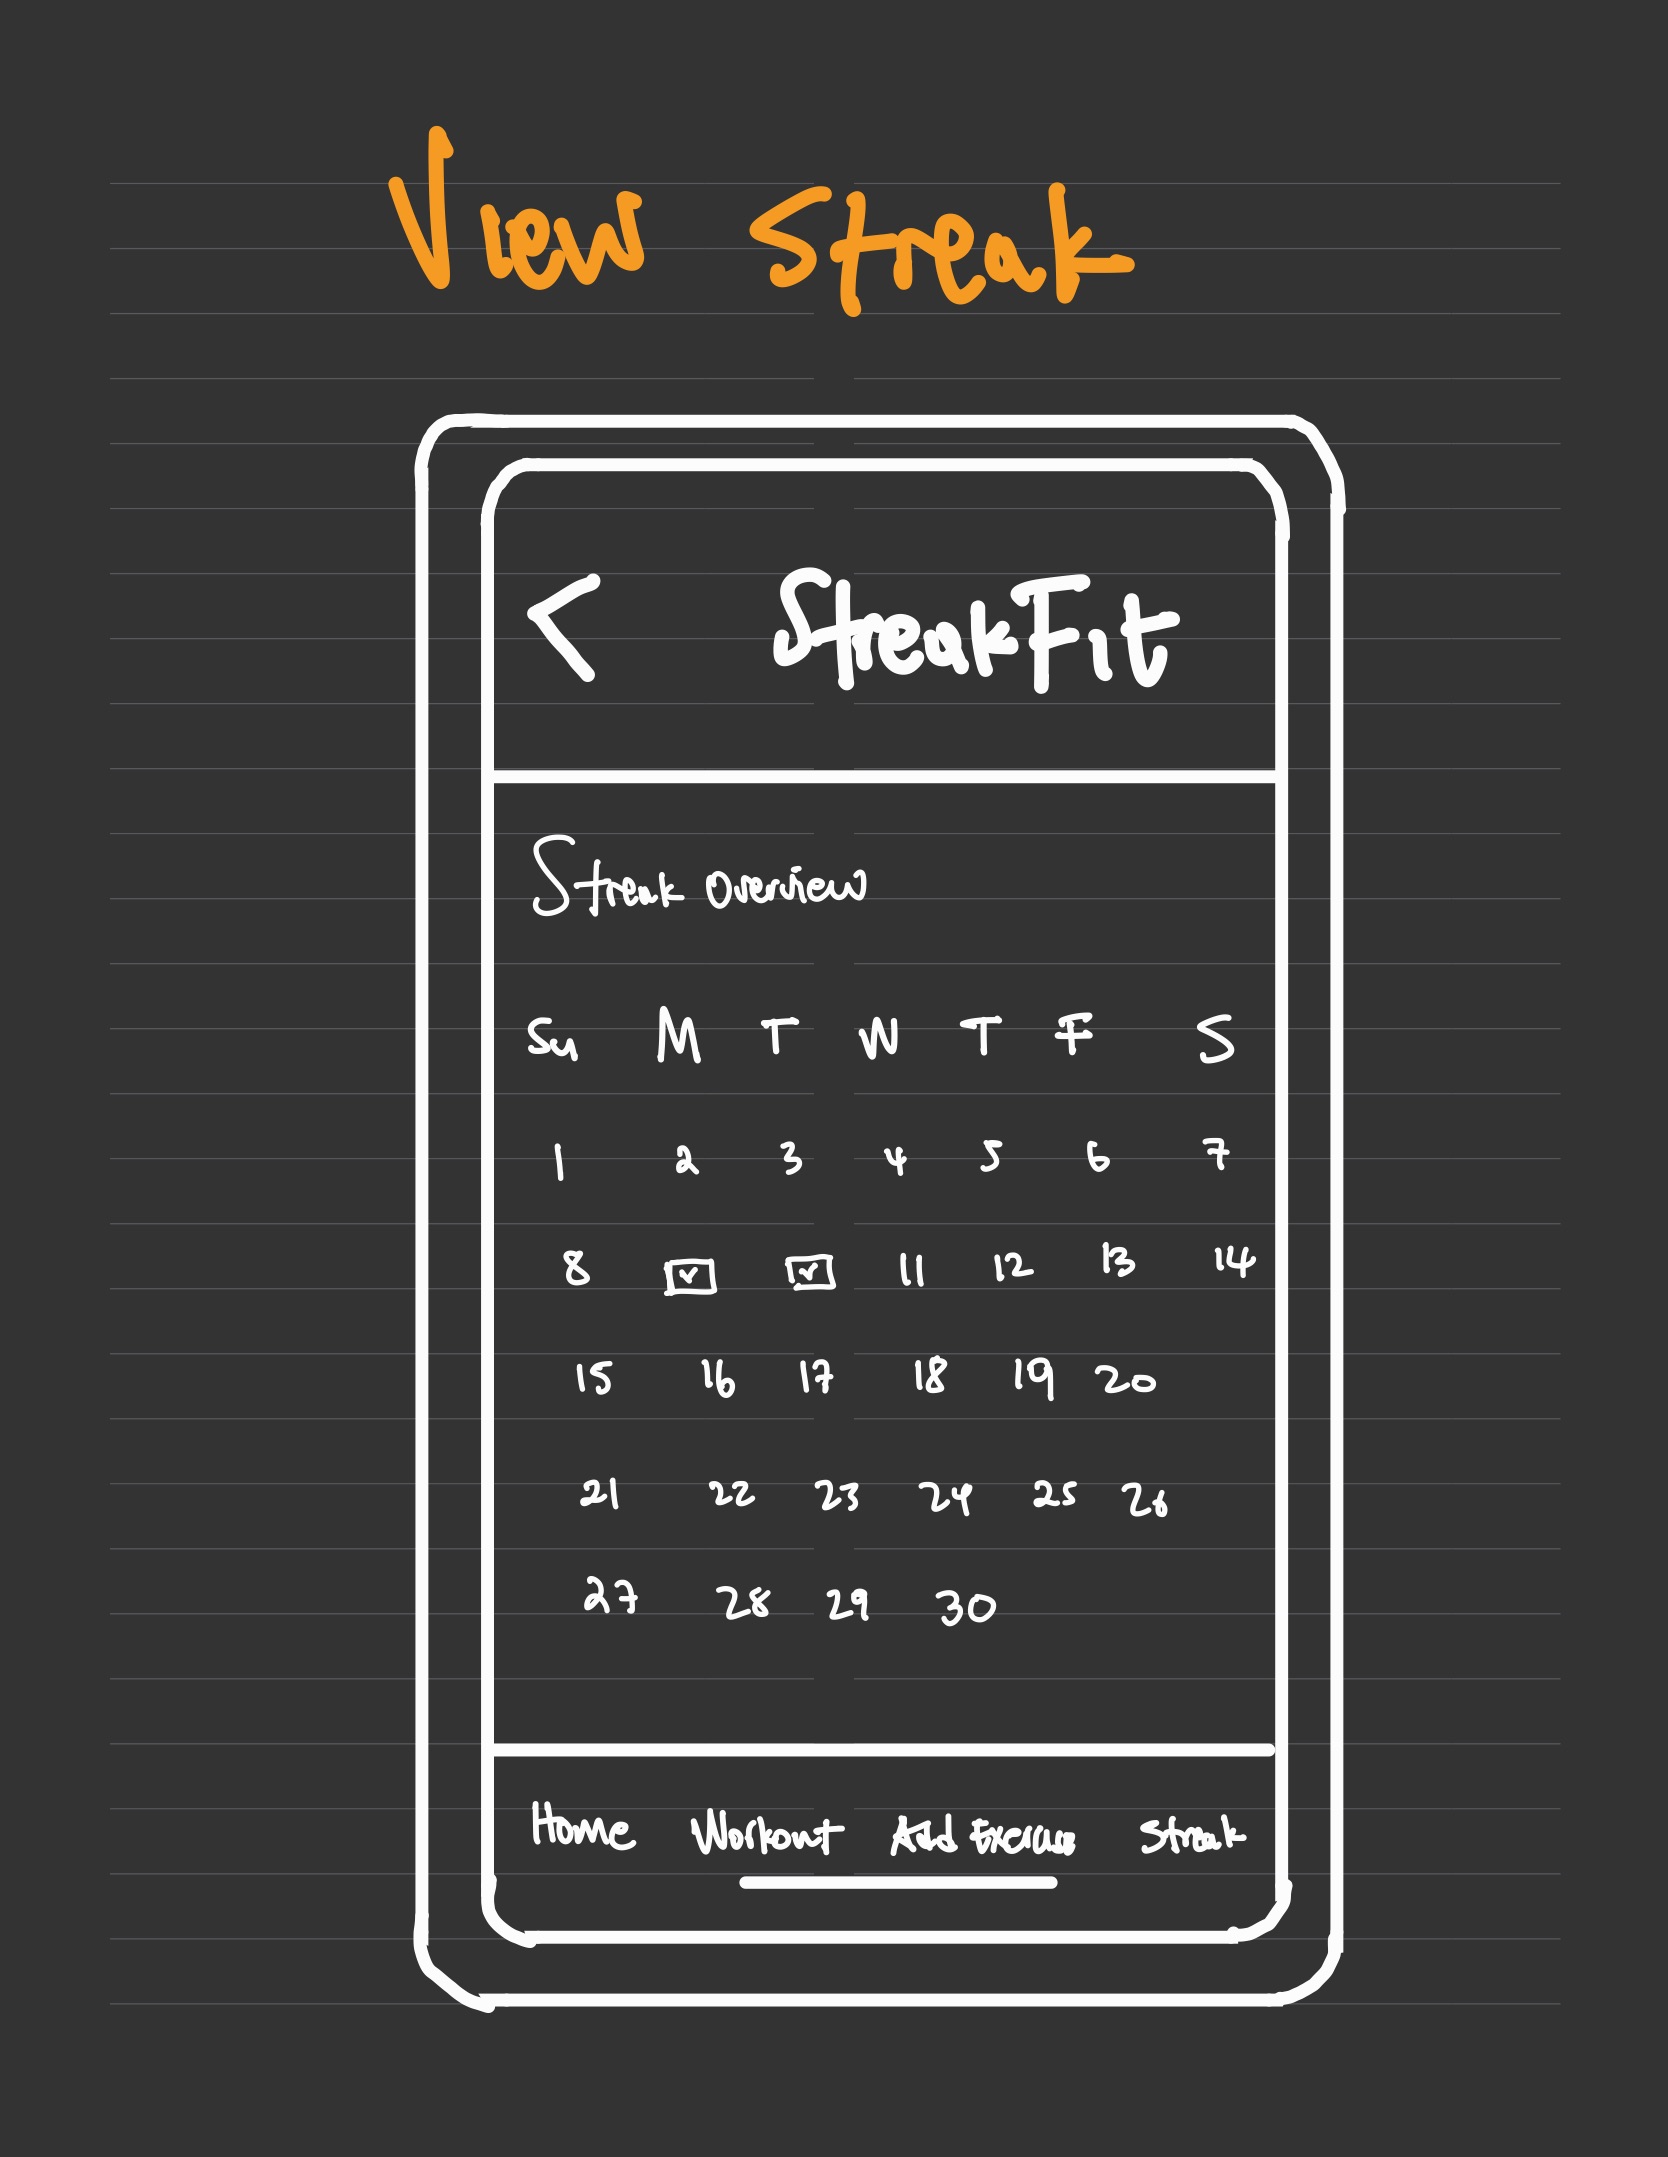 View Streak
< StreakFit
Streak overview
Su M T W T F S
1 2 3 4 5 6 7
8 11 12 13 14
15 16 17 18 19 20
21 22 23 24 25 26
27 28 29 30
Home Workout Add Exercise Streak